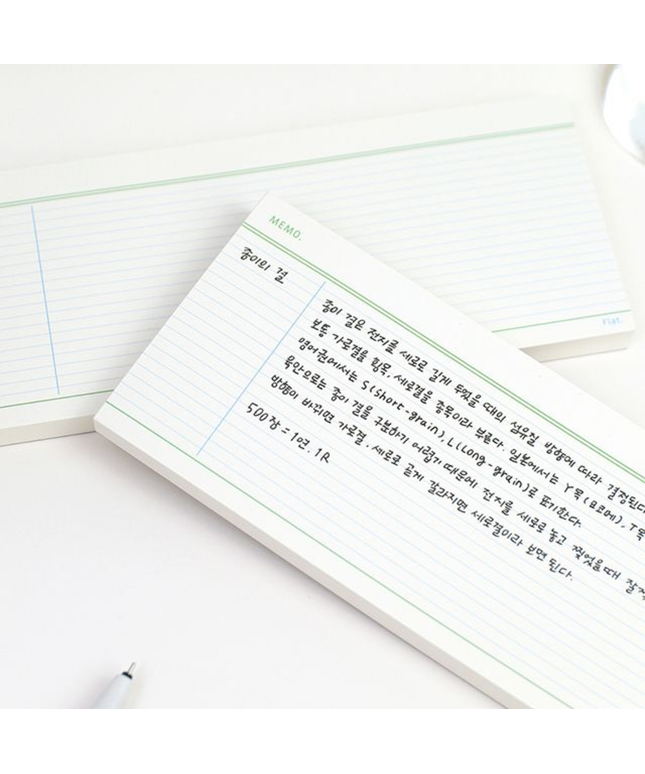 MEMO.
종이의 결
종이 결은 전지를 세로로 길게 두었을 때의 섬유질 방향에 따라 결정된다
보통 가로결을 횡목, 세로결을 종목이라 부른다. 일본에서는 Y목(요코메), T목
영어권에서는 S(Short-grain), L(Long-grain)로 표기한다.
육안으로는 종이 결을 구분하기 어렵기 때문에 전지를 세로로 놓고 찢었을때
방향이 바뀌면 가로결, 세로로 곧게 갈라지면 세로결이라 보면 된다.
500장 = 1연. 1R
Flat.